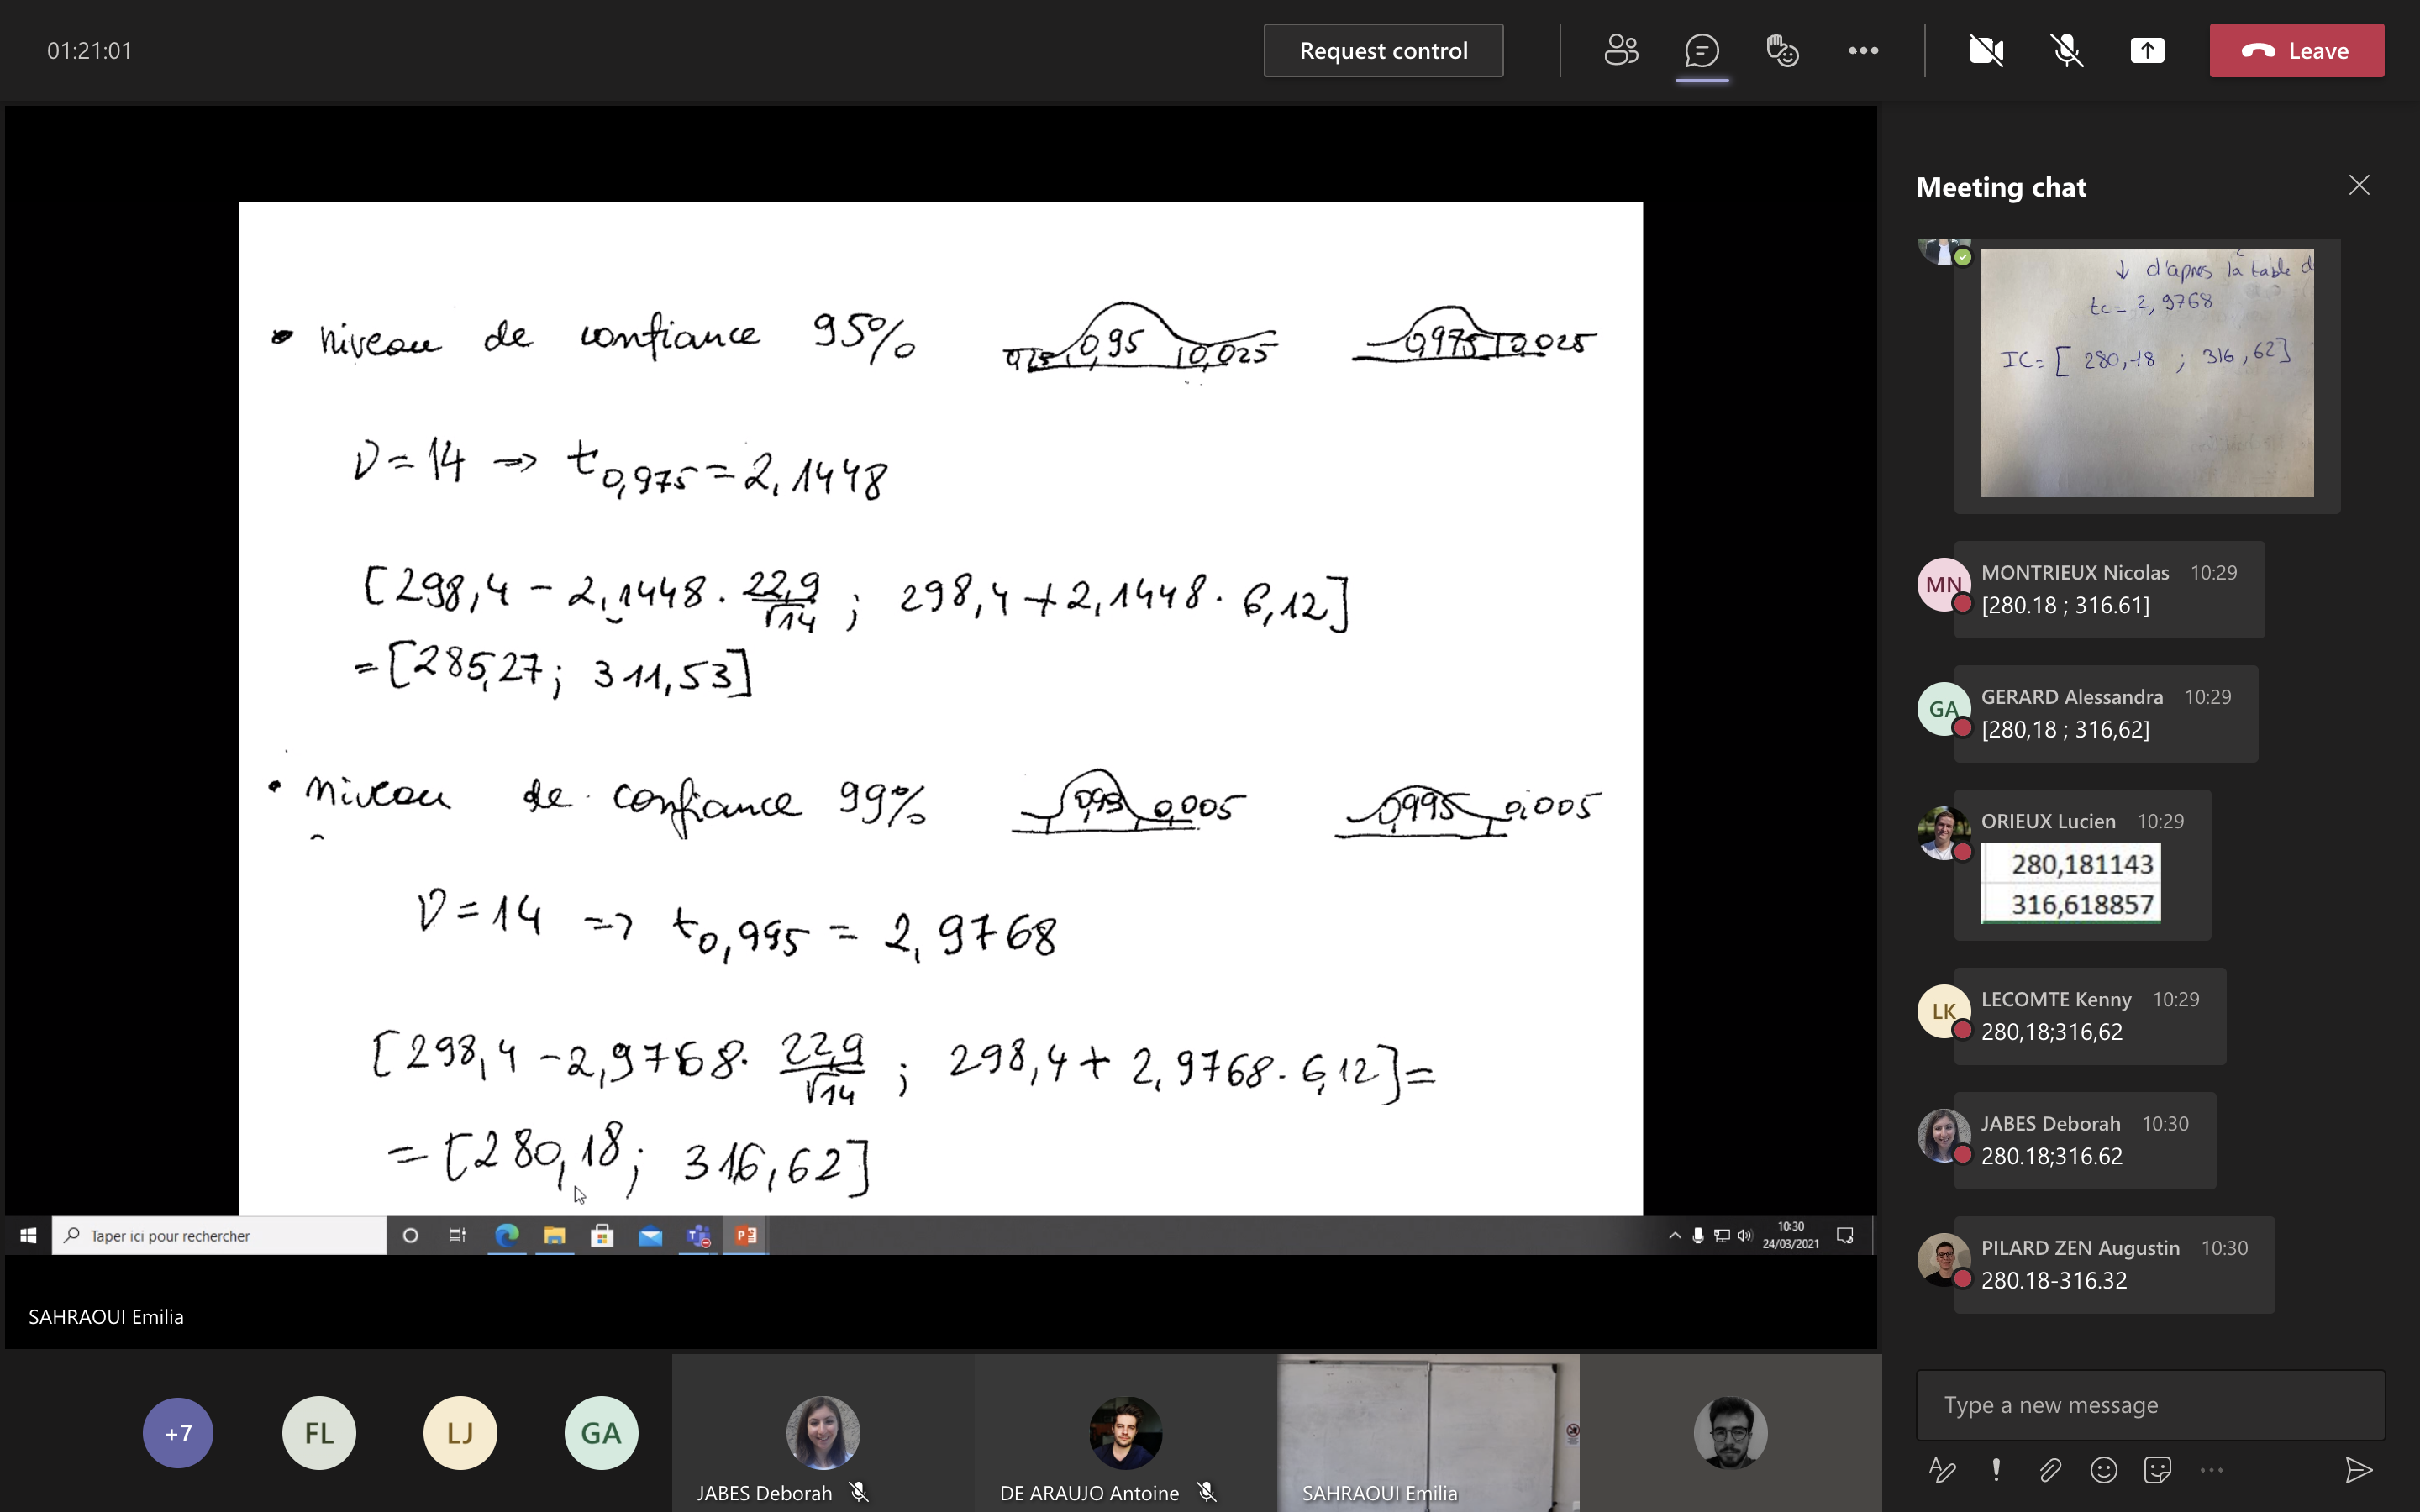 01:21:01
Request control
Leave
• niveau de confiance 95%
0,025 0,95 0,025
0,975 0,025
ν = 14 → t0,975 = 2,1448
[298,4 − 2,1448 · 22,9/√14 ; 298,4 + 2,1448 · 6,12]
= [285,27 ; 311,53]
• niveau de confiance 99%
0,99 0,005
0,995 0,005
ν = 14 => t0,995 = 2,9768
[298,4 − 2,9768 · 22,9/√14 ; 298,4 + 2,9768 · 6,12] =
= [280,18 ; 316,62]
Taper ici pour rechercher
10:30
24/03/2021
SAHRAOUI Emilia
+7
FL
LJ
GA
JABES Deborah
DE ARAUJO Antoine
SAHRAOUI Emilia
Meeting chat
↓ d'apres la table d
tc = 2,9768
IC = [ 280,18 ; 316,62]
MN
MONTRIEUX Nicolas 10:29
[280.18 ; 316.61]
GA
GERARD Alessandra 10:29
[280,18 ; 316,62]
ORIEUX Lucien 10:29
280,181143
316,618857
LK
LECOMTE Kenny 10:29
280,18;316,62
JABES Deborah 10:30
280.18;316.62
PILARD ZEN Augustin 10:30
280.18-316.32
Type a new message